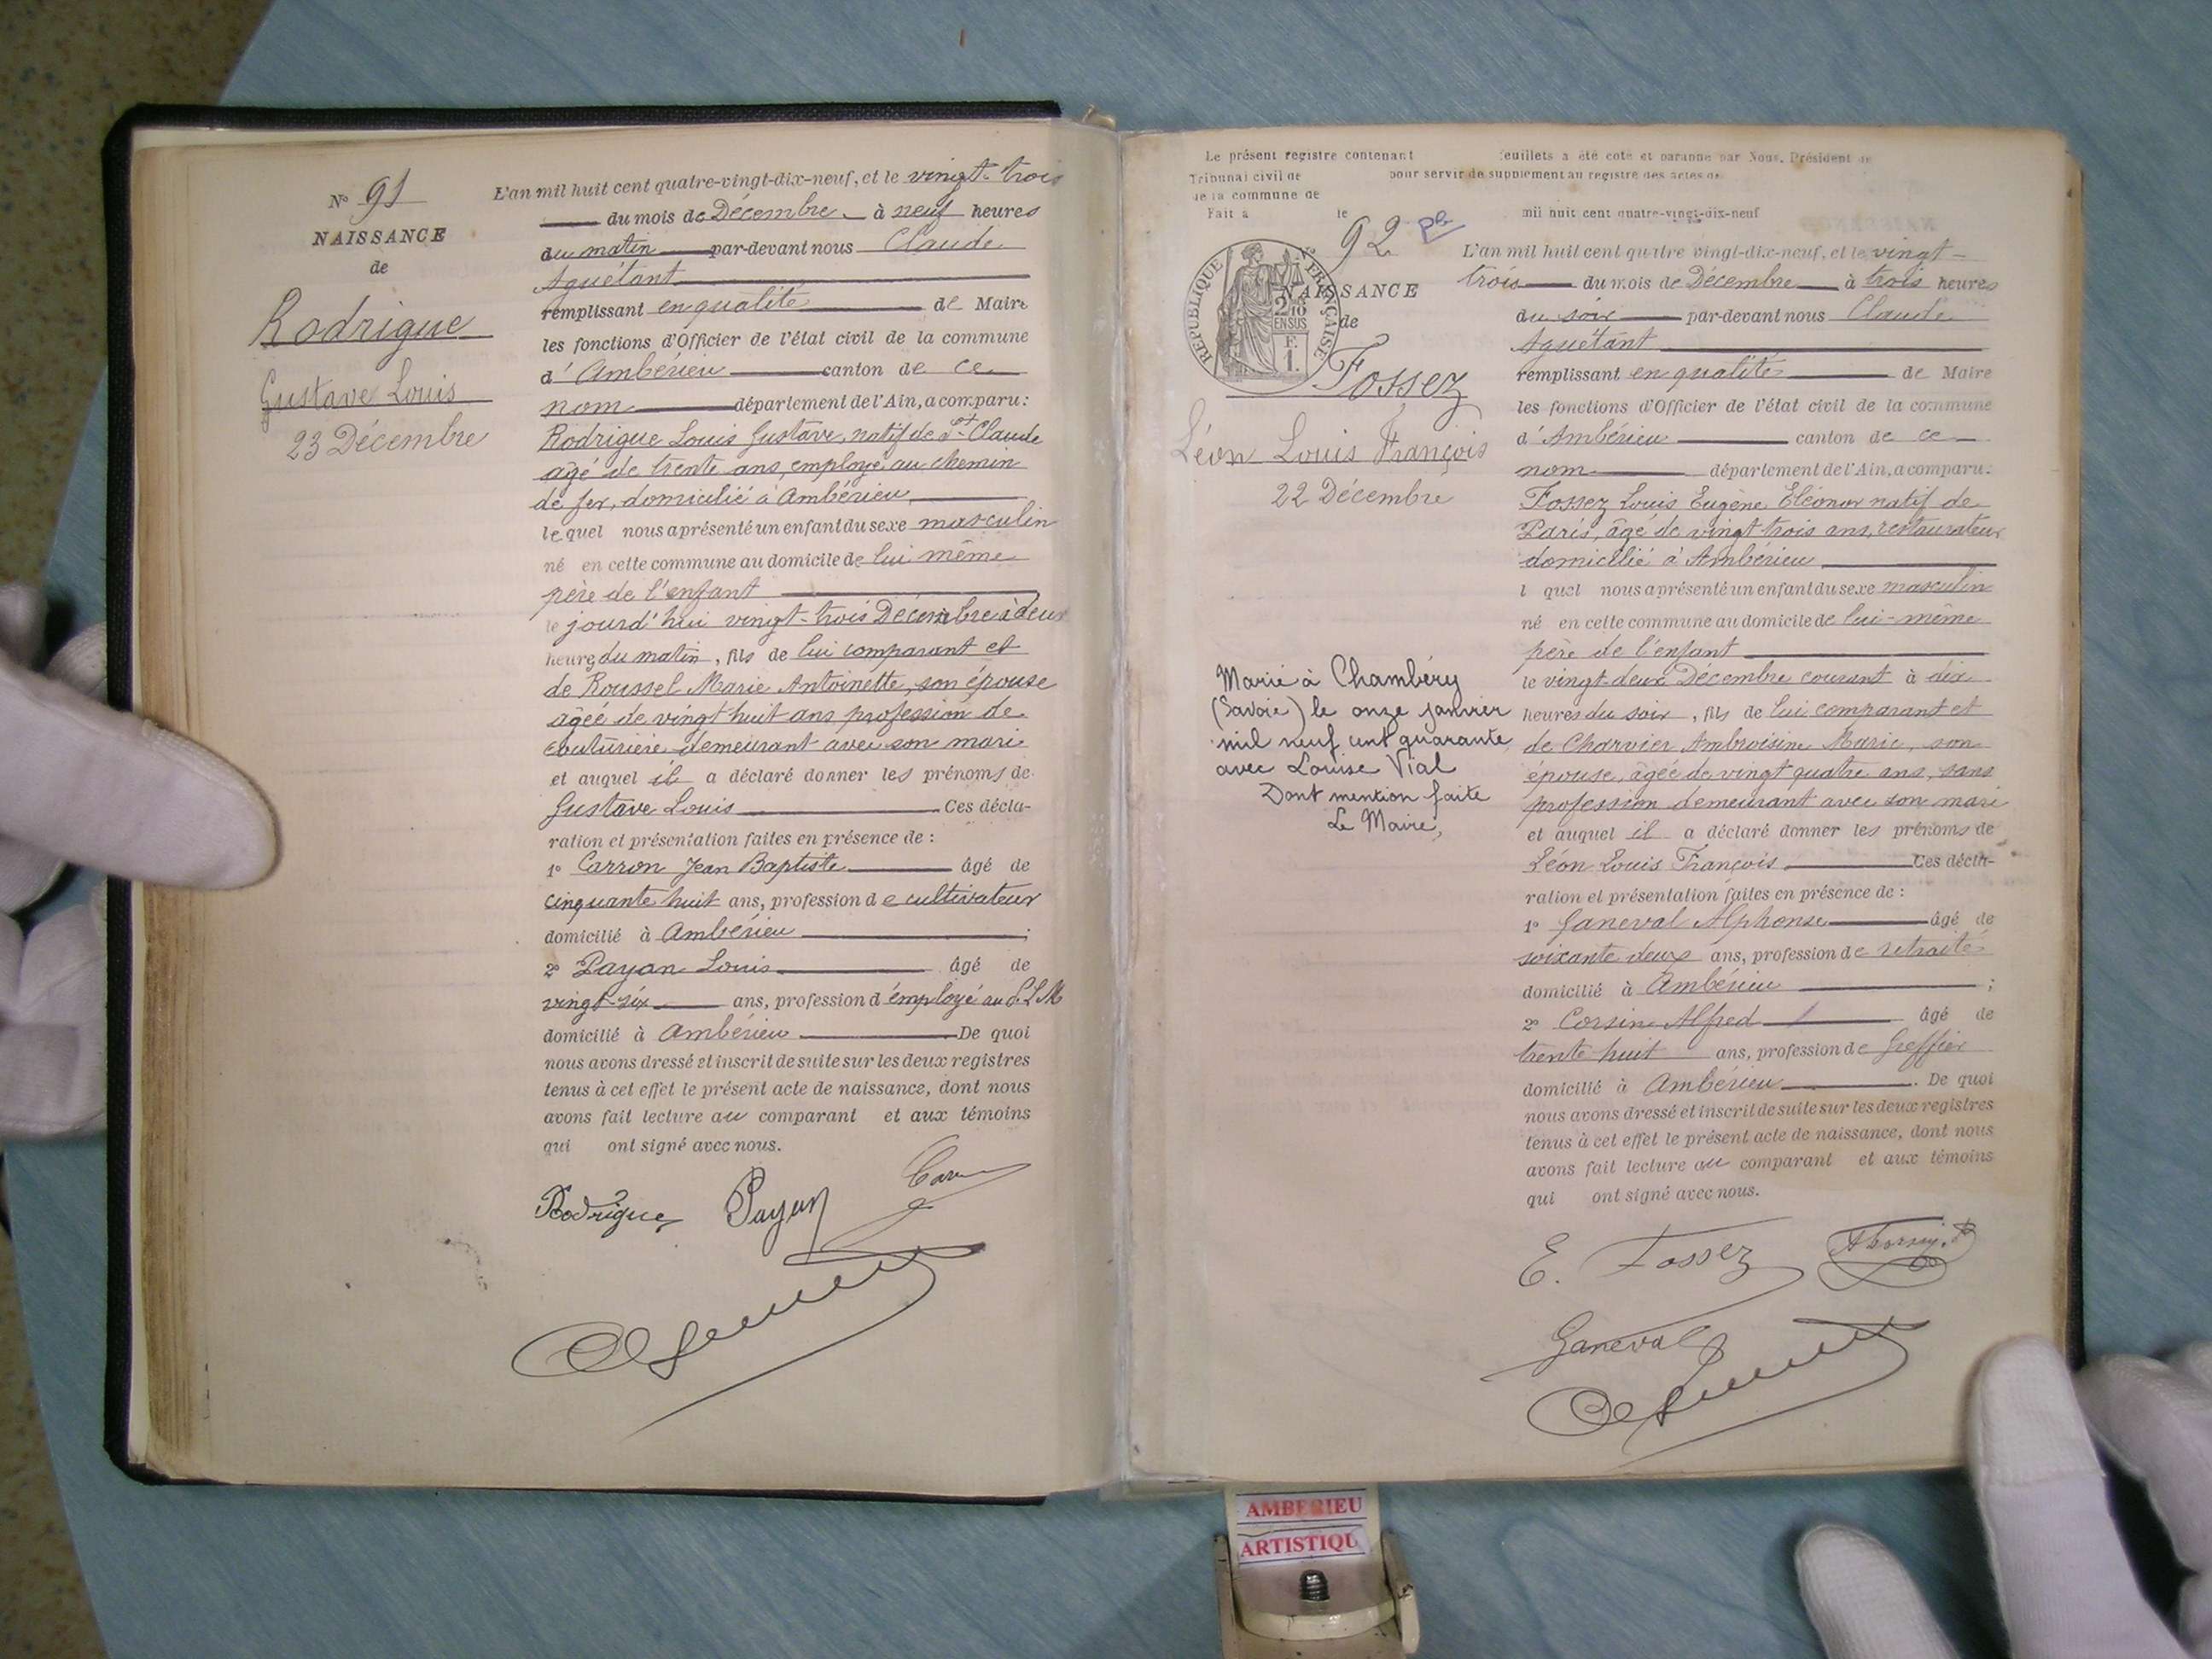 N° 91
NAISSANCE
de
Rodrigue
Gustave Louis
23 Décembre
L'an mil huit cent quatre-vingt-dix-neuf, et le vingt-trois
du mois de Décembre à neuf heures
du matin par-devant nous Claude
Aguétant
remplissant en qualité de Maire
les fonctions d'Officier de l'état civil de la commune
d'Ambérieu canton de ce
nom département de l'Ain, a comparu:
Rodrigue Louis Gustave, natif de St Claude
âgé de trente ans, employé au chemin
de fer, domicilié à Ambérieu
lequel nous a présenté un enfant du sexe masculin
né en cette commune au domicile de lui même
père de l'enfant
le jourd'hui vingt-trois Décembre à deux
heures du matin, fils de lui comparant et
de Roussel Marie Antoinette, son épouse
âgée de vingt huit ans profession de
couturière demeurant avec son mari
et auquel il a déclaré donner les prénoms de
Gustave Louis Ces décla-
ration et présentation faites en présence de :
1° Carron Jean Baptiste âgé de
cinquante huit ans, profession de cultivateur
domicilié à Ambérieu ;
2° Payan Louis âgé de
vingt-six ans, profession d'employé au P.L.M
domicilié à Ambérieu De quoi
nous avons dressé et inscrit de suite sur les deux registres
tenus à cet effet le présent acte de naissance, dont nous
avons fait lecture au comparant et aux témoins
qui ont signé avec nous.
Rodrigue Payan
Le présent registre contenant feuillets a été coté et paraphé par Nous, Président du
Tribunal civil de pour servir de supplément au registre des actes de
de la commune de
Fait à le mil huit cent quatre-vingt-dix-neuf
N° 92
RÉPUBLIQUE FRANÇAISE
2/10
EN SUS
F.
1.
NAISSANCE
de
Fossez
Léon Louis François
22 Décembre
Marié à Chambéry
(Savoie) le onze janvier
mil neuf cent quarante
avec Louise Vial
Dont mention faite
Le Maire,
L'an mil huit cent quatre vingt-dix-neuf, et le vingt-
trois du mois de Décembre à trois heures
du soir par-devant nous Claude
Aguétant
remplissant en qualité de Maire
les fonctions d'Officier de l'état civil de la commune
d'Ambérieu canton de ce
nom département de l'Ain, a comparu:
Fossez Louis Eugène Eléonor natif de
Paris, âgé de vingt-trois ans, restaurateur
domicilié à Ambérieu
l quel nous a présenté un enfant du sexe masculin
né en cette commune au domicile de lui-même
père de l'enfant
le vingt-deux Décembre courant à dix
heures du soir, fils de lui comparant et
de Charvier Ambroisine Marie, son
épouse, âgée de vingt quatre ans, sans
profession demeurant avec son mari
et auquel il a déclaré donner les prénoms de
Léon Louis François Ces décla-
ration et présentation faites en présence de :
1° Ganeval Alphonse âgé de
soixante deux ans, profession de retraité
domicilié à Ambérieu ;
2° Corsin Alfred âgé de
trente huit ans, profession de Greffier
domicilié à Ambérieu. De quoi
nous avons dressé et inscrit de suite sur les deux registres
tenus à cet effet le présent acte de naissance, dont nous
avons fait lecture au comparant et aux témoins
qui ont signé avec nous.
E. Fossez
Ganeval
AMBERIEU
ARTISTIQU